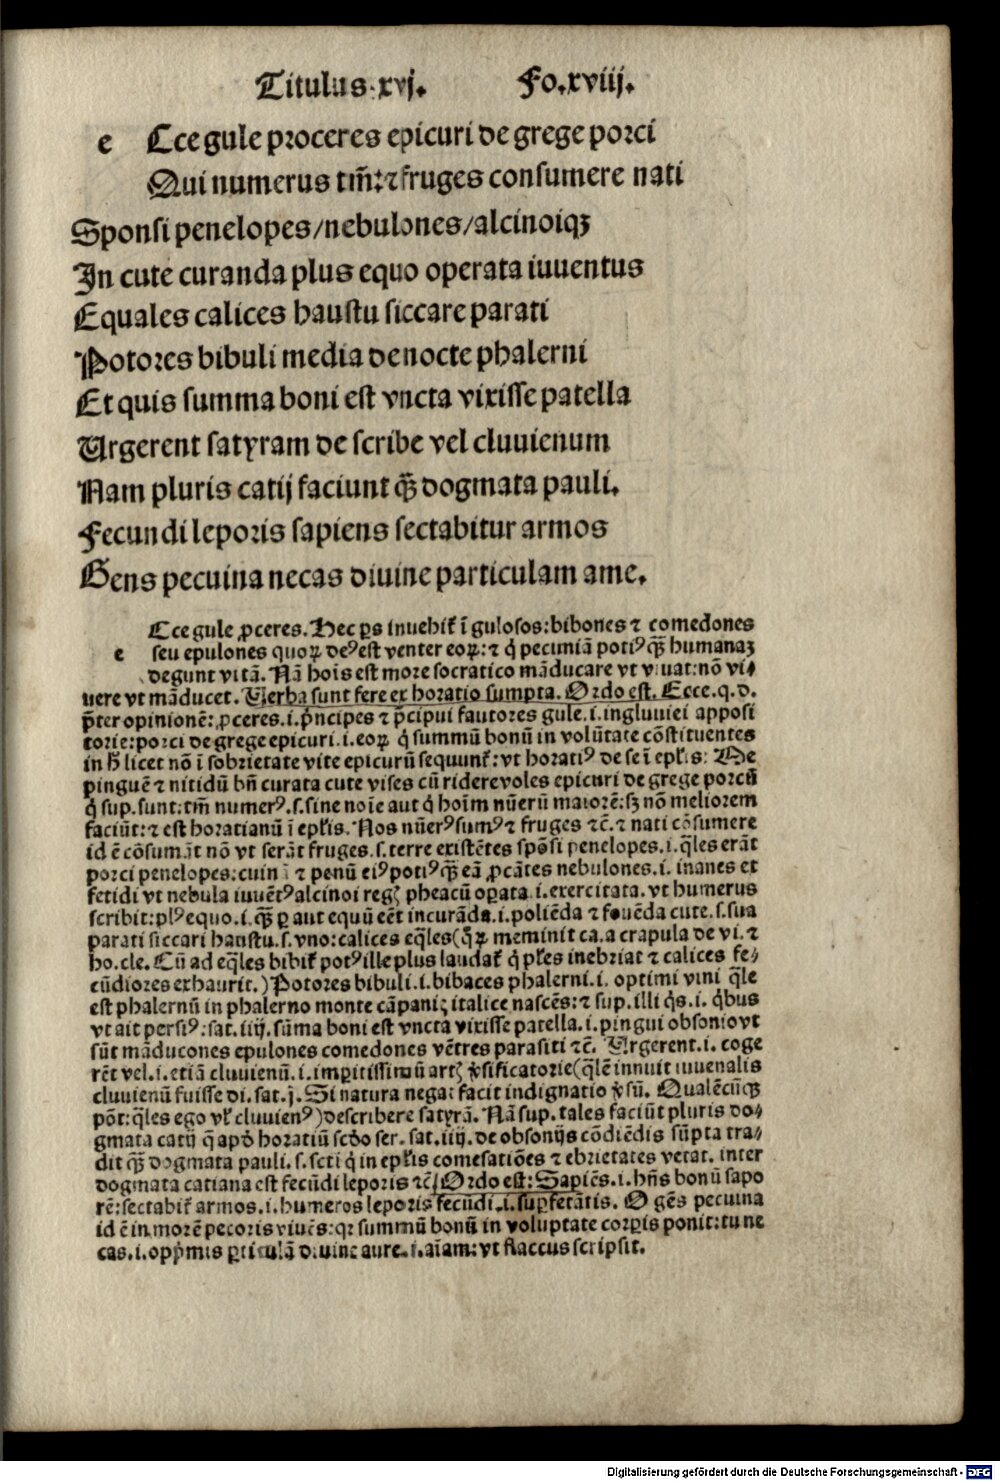 Titulus.xvj. Fo.xviij.
e Cce gule proceres epicuri de grege porci
Qui numerus tm̄:⁊ fruges consumere nati
Sponsi penelopes/nebulones/alcinoiqꝫ
In cute curanda plus equo operata iuuentus
Equales calices haustu siccare parati
Potores bibuli media de nocte phalerni
Et quis summa boni est vncta vixisse patella
Urgerent satyram de scribe vel cluuienum
Nam pluris catij faciunt q̄ꝫ dogmata pauli.
Fecundi leporis sapiens sectabitur armos
Gens pecuina necas diuine particulam ame.
Cce gule ꝓceres. Hec ps inuehit̉ ī gulosos:bibones ⁊ comedones
e seu epulones quoꝝ deꝰ est venter eoꝝ:⁊ q̇ pecuniā potiꝰ q̄ꝫ humanaꝫ
degunt vitā. Nā hoīs est more socratico māducare vt viuat:nō vi-
uere vt māducet. Uerba sunt fere ex horatio sumpta. Ordo est. Ecce.q.d.
p̄ter opinionē:ꝓceres.i.p̄ncipes ⁊ p̄cipui fautores gule.i.ingluuiei apposi
torie:porci de grege epicuri.i.eoꝝ q̇ summū bonū in volūtate cōstituentes
in h̄ licet nō ī sobrietate vite epicurū sequunt̉:vt horatiꝰ de se ī ep̄lis: Me
pinguē ⁊ nitidū bn̄ curata cute vises cū ridere voles epicuri de grege porcū
q̇ sup.sunt:tm̄ numerꝰ.s.sine noīe aut q̇ hoīm nūerū maiorē:sꝫ nō meliorem
faciūt:⁊ est horatianū ī ep̄lis. Nos nūerꝰ sumꝰ ⁊ fruges ⁊c̄.⁊ nati cōsumere
id ē cōsumāt nō vt serāt fruges.s.terre existētes spōsi penelopes.i.q̄les erāt
porci penelopes: ⁊ penū eiꝰ potiꝰ q̄ꝫ eā ꝓcātes nebulones.i. inanes et
fetidi vt nebula iuuētꝰ alcinoi regꝭ pheacū oꝑata.i.exercitata.vt humerus
scribit:plꝰ equo.i.q̄ꝫ ꝑ aut equū eēt incurāda.i.poliēda ⁊ fouēda cute.s.sua
parati siccari haustu.s.vno:calices eq̄les(q̄ꝝ meminit ca.a crapula de vi.⁊
ho.cle. Cū ad eq̄les bibit̉ potꝰ ille plus laudat̉ q̇ p̄les inebriat ⁊ calices fe-
cūdiores exhaurit.)Potores bibuli.i.bibaces phalerni.i. optimi vini q̄le
est phalernū in phalerno monte cāpanię italice nascēs:⁊ sup.illi q̇s.i. q̇bus
vt ait persiꝰ:sat.iiij.sūma boni est vncta vixisse patella.i.pingui obsonio vt
sūt māducones epulones comedones vētres parasiti ⁊c̄. Urgerent.i. coge
rēt vel.i.etiā cluuienū.i.imꝑitissimū artꝭ v̓sificatorie(q̄lē innuit iuuenalis
cluuienū fuisse di.sat.j. Si natura negat facit indignatio v̓sū. Qualēcūqꝫ
pōt:q̄les ego vl̓ cluuienꝰ)describere satyrā. Nā sup.tales faciūt pluris do-
gmata catij q̄ apd̓ horatiū scd̓o ser. sat.iiij.de obsonijs cōdiēdis sūpta tra-
dit q̄ꝫ dogmata pauli.s.scti q̇ in ep̄lis comesatiōes ⁊ ebrietates vetat. inter
dogmata catiana est fecūdi leporis ⁊c̄ Ordo est:Sapiēs.i.hn̄s bonū sapo
rē:sectabit̉ armos.i.humeros leporis fecūdi.i.suꝑfetātis. O gēs pecuina
id ē in morē pecoris viuēs:qꝛ summū bonū in voluptate corꝑis ponit:tu ne
cas.i.opprimis ꝑticulā diuine aure.i.aīam:vt flaccus scripsit.
Digitalisierung gefördert durch die Deutsche Forschungsgemeinschaft - DFG